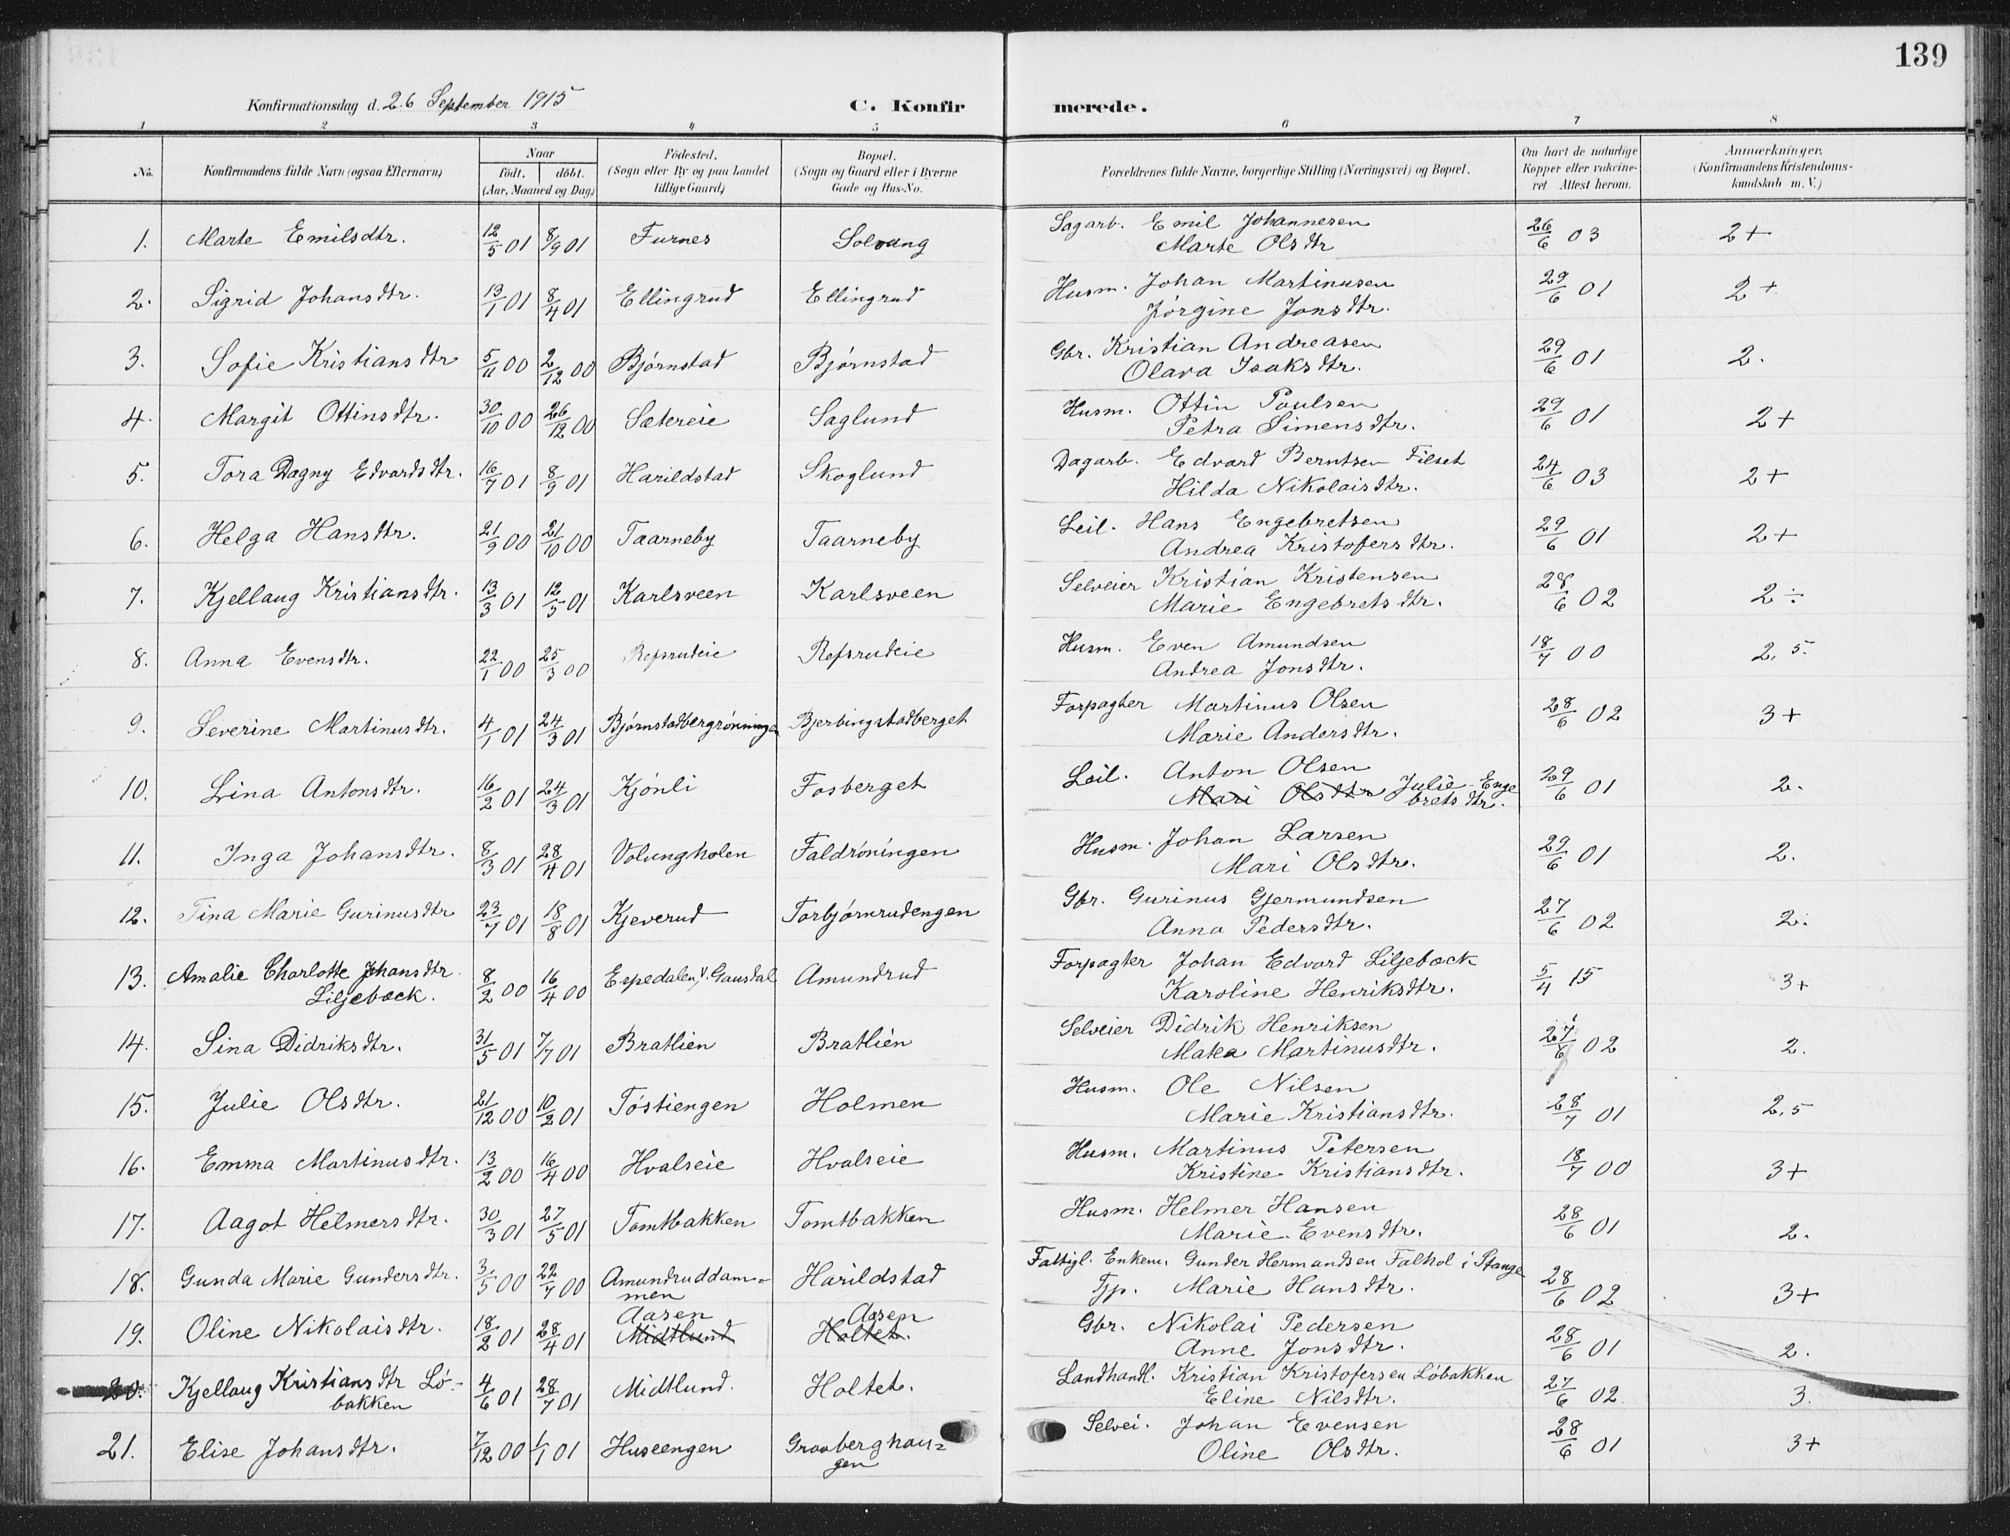 139
Konfirmationsdag d. 26 September 1915 C. Konfirmerede.
1 2 3 4 5 6 7 8
No. Konfirmandens fulde Navn (ogsaa Efternavn) Naar født. døbt. (Aar, Maaned og Dag) Fødested. (Sogn eller By og paa Landet tillige Gaard) Bopæl. (Sogn og Gaard eller i Byerne Gade og Hus-No. Forældrenes fulde Navne, borgerlige Stilling (Næringsvei) og Bopæl. Om havt de naturlige Kopper eller vakcineret. Attest herom. Anmærkninger. (Konfirmandens Kristendomskundskab m. V.)
1. Marte Emilsdtr. 12/5 01 8/9 01 Furnes Solvang Sagarb. Emil Johannesen 26/6 03 2+
Marte Olsdtr
2. Sigrid Johansdtr. 13/1 01 8/4 01 Ellingrud Ellingrud Husm. Johan Martinusen 29/6 01 2+
Jørgine Jonsdtr.
3. Sofie Kristiansdtr 5/11 00 2/12 00 Bjørnstad Bjørnstad Gbr. Kristian Andreasen 29/6 01 2.
Olava Isaksdtr.
4. Margit Ottinsdtr. 30/10 00 26/12 00 Sætereie Saglund Husm. Ottin Paulsen 29/6 01 2+
Petra Simensdtr.
5. Tora Dagny Edvardsdtr. 16/7 01 8/9 01 Harildstad Skoglund Dagarb. Edvard Berntsen Filset 24/6 03 2+
Hilda Nikolaisdtr.
6. Helga Hansdtr. 21/9 00 21/10 00 Taarneby Taarneby Leil. Hans Engebretsen 29/6 01 2+
Andrea Kristofersdtr.
7. Kjellaug Kristiansdtr. 13/3 01 12/5 01 Karlsveen Karlsveen Selveier Kristian Kristensen 28/6 02 2÷
Marie Engebretsdtr.
8. Anna Evensdtr. 22/1 00 25/3 00 Refsrudeie Refsrudeie Husm. Even Amundsen 18/7 00 2,5.
Andrea Jonsdtr.
9. Severine Martinusdtr. 4/1 01 24/3 01 Bjørnstadbergrønningen Bjerbingstadberget Forpagter Martinus Olsen 28/6 02 3+
Marie Andersdtr.
10. Lina Antonsdtr. 16/2 01 24/3 01 Kjønli Fosberget Leil. Anton Olsen 29/6 01 2.
Mari Olsdtr Julie Engebretsdtr.
11. Inga Johansdtr. 8/3 01 28/4 01 Volungholen Faldrøningen Husm. Johan Larsen 29/6 01 2.
Mari Olsdtr.
12. Tina Marie Gurinusdtr 23/7 01 18/8 01 Kjeverud Torbjørnrudengen Gbr. Gurinus Gjermundsen 27/6 02 2.
Anna Pedersdtr.
13. Amalie Charlotte Johansdtr. 8/2 00 16/4 00 Espedalen, V. Gausdal Amundrud Forpagter Johan Edvard Liljebæck 5/4 15 3+
Liljebæck. Karoline Henriksdtr.
14. Sina Didriksdtr. 31/5 01 7/7 01 Bratlien Bratlien Selveier Didrik Henriksen 27/6 02 2.
Matea Martinusdtr.
15. Julie Olsdtr. 21/12 00 10/2 01 Tøstiengen Holmen Husm. Ole Nilsen 28/7 01 2,5
Marie Kristiansdtr.
16. Emma Martinusdtr. 13/2 00 16/4 00 Hvalseie Hvalseie Husm. Martinus Petersen 18/7 00 3+
Kristine Kristiansdtr.
17. Aagot Helmersdtr. 30/3 01 27/5 01 Tomtbakken Tomtbakken Husm. Helmer Hansen 28/6 01 2.
Marie Evensdtr.
18. Gunda Marie Gundersdtr. 3/5 00 22/7 00 Amundruddammen Harildstad Fattigl. Enkem. Gunder Hermandsen Falhol i Stange 28/6 02 3+
Tjp. Marie Hansdtr.
19. Oline Nikolaisdtr. 18/2 01 28/4 01 Aasen Midtlund Aasen Holtet. Gbr. Nikolai Pedersen 28/6 01 2.
Anne Jonsdtr.
20. Kjellaug Kristiansdtr Løbakken 4/6 01 28/7 01 Midtlund. Holtet. Landhandl. Kristian Kristofersen Løbakken 27/6 02 3.
Eline Nilsdtr.
21. Elise Johansdtr. 7/12 00 1/1 01 Huseengen Graaberghaugen Selvei. Johan Evensen 28/6 01 3+
Oline Olsdtr.